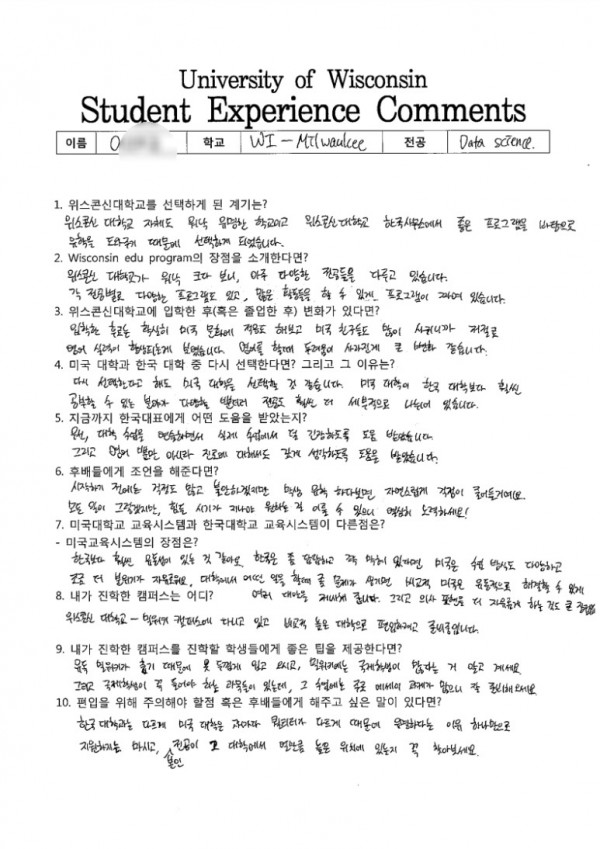 University of Wisconsin
Student Experience Comments
이름 학교 WI - Milwaukee 전공 Data science.
1. 위스콘신대학교를 선택하게 된 계기는?
위스콘신 대학교 자체도 워낙 유명한 학교이고 위스콘신대학교 한국사무소에서 좋은 프로그램을 바탕으로
유학을 도와주기 때문에 선택하게 되었습니다.
2. Wisconsin edu program의 장점을 소개한다면?
위스콘신 대학교가 워낙 크다 보니, 아주 다양한 전공들을 다루고 있습니다.
각 전공별로 다양한 프로그램도 있고, 많은 활동들을 할 수 있게 프로그램이 짜여 있습니다.
3. 위스콘신대학교에 입학한 후(혹은 졸업한 후) 변화가 있다면?
입학한 후로는 확실히 미국 문화에 적응도 해보고 미국 친구들도 많이 사귀니까 저절로
영어 실력이 향상되는게 보였습니다. 영어를 할때 두려움이 사라진게 큰 변화 같습니다.
4. 미국 대학과 한국 대학 중 다시 선택한다면? 그리고 그 이유는?
다시 선택한다고 해도 미국 대학을 선택할 것 같습니다. 미국 대학이 한국 대학보다 훨씬
공부할 수 있는 분야가 다양할 뿐더러 전공도 훨씬 더 세부적으로 나뉘어 있습니다.
5. 지금까지 한국대표에게 어떤 도움을 받았는지?
우선, 대학 수업을 연습하면서 실제 수업에서 덜 긴장하도록 도움 받았습니다.
그리고 영어 뿐만 아니라 진로에 대해서도 깊게 생각하도록 도움을 받았습니다.
6. 후배들에게 조언을 해준다면?
시작하기 전에는 걱정도 많고 불안하겠지만 막상 유학 하다보면, 자연스럽게 걱정이 줄어들거에요.
모든 일이 그렇겠지만, 힘든 시기가 지나야 원하는 걸 이룰 수 있으니 열심히 노력하세요!
7. 미국대학교 교육시스템과 한국대학교 교육시스템이 다른점은?
- 미국교육시스템의 장점은?
한국보다 훨씬 유동성이 있는 것 같아요. 한국은 좀 답답하고 꽉 막혀 있다면 미국은 수업 방식도 다양하고
조금 더 분위기가 자유로워요. 대학에서 어떤 일을 할때 좀 문제가 생기면 비교적 미국은 유동적으로 해결할 수 있게
여러 대안을 제시해 줍니다. 그리고 의사 표현을 더 자유롭게 하는 것도 큰 장점
8. 내가 진학한 캠퍼스는 어디?
위스콘신 대학교 - 밀워키 캠퍼스에 다니고 있고 비교적 높은 대학으로 편입하려고 준비중입니다.
9. 내가 진학한 캠퍼스를 진학할 학생들에게 좋은 팁을 제공한다면?
우선 밀워키가 춥기 때문에 옷 두껍게 입고 오시고, 밀워키에는 국제학생이 많다는 거 알고 계세요.
그리고 국제학생이 꼭 들어야 하는 과목들이 있는데, 그 수업에는 주로 에세이 과제가 많으니 잘 준비해오세요.
10. 편입을 위해 주의해야 할점 혹은 후배들에게 해주고 싶은 말이 있다면?
한국 대학과는 다르게 미국 대학은 과마다 퀄리티가 다르기 때문에 유명하다는 이유 하나만으로
지원하지는 마시고, 본인 전공이 그 대학에서 얼만큼 높은 위치에 있는지 꼭 찾아보세요.